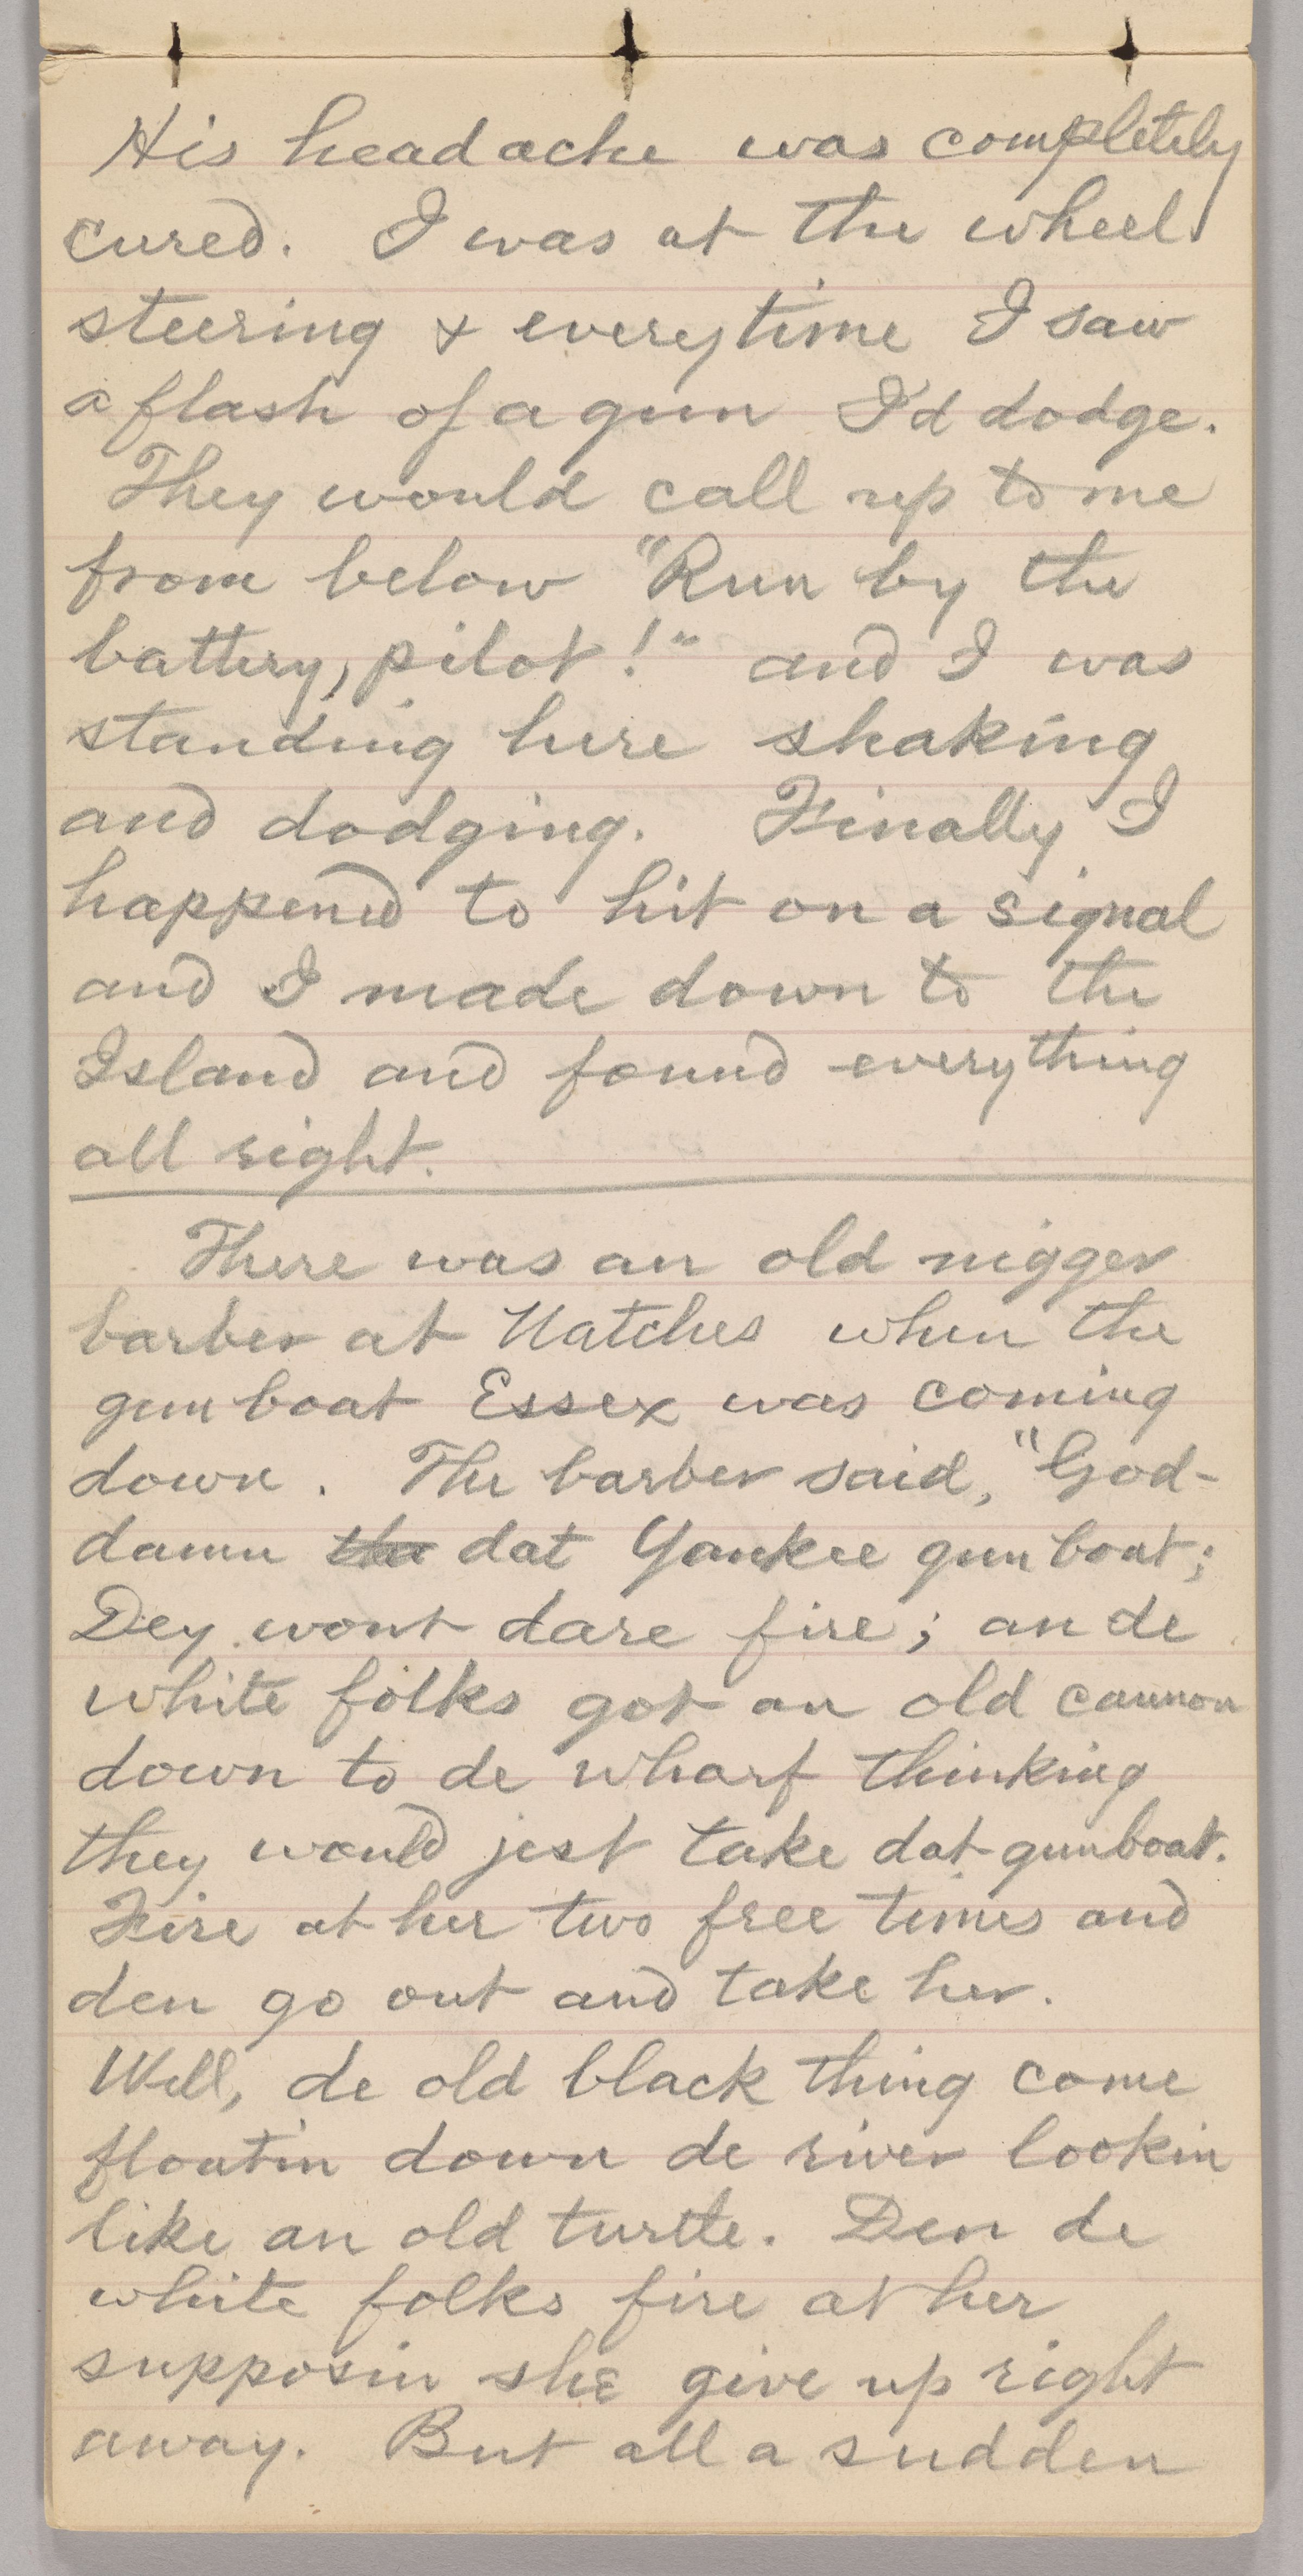 His headache was completely
cured. I was at the wheel
steering & everytime I saw
a flash of a gun I'd dodge.
They would call up to me
from below "Run by the
battery, pilot!" and I was
standing here shaking
and dodging. Finally I
happened to hit on a signal
and I made down to the
Island and found everything
all right.
There was an old nigger
barber at Natches when the
gun boat Essex was coming
down. The barber said, "God-
damn the dat Yankee gun boat;
Dey wont dare fire; an de
white folks got an old cannon
down to de wharf thinking
they would jest take dat gunboat.
Fire at her two free times and
den go out and take her.
Well, de old black thing come
floatin down de river lookin
like an old turtle. Den de
white folks fire at her
supposin she give up right
away. But all a sudden